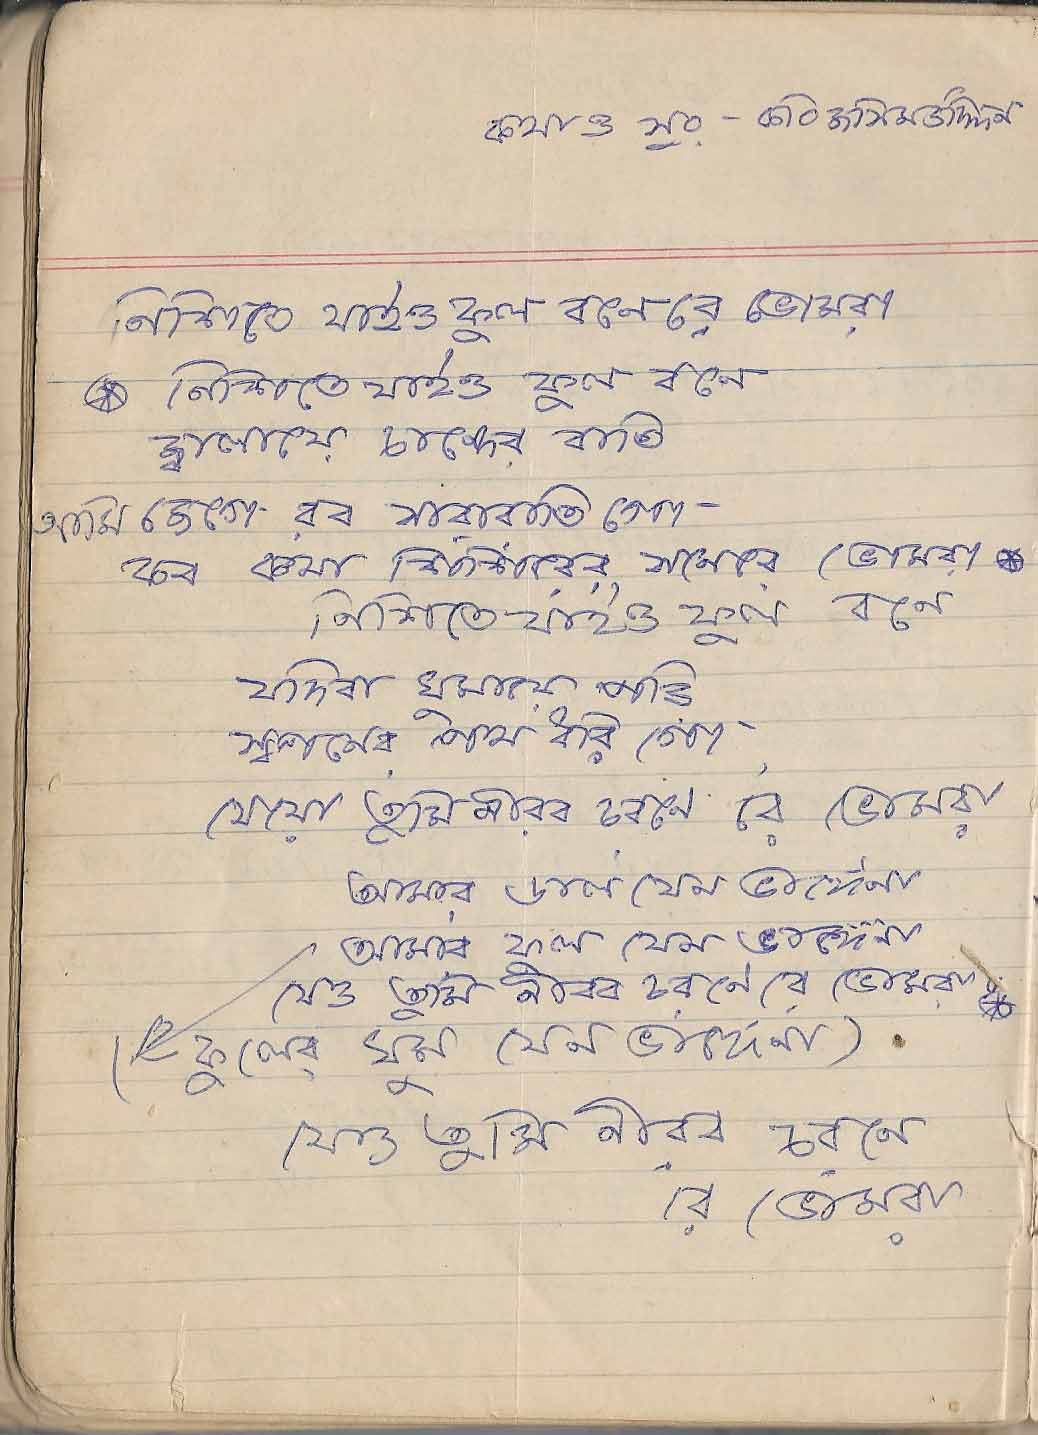 কথা ও সুর - কবি জসিমউদ্দিন
নিশিতে যাইও ফুল বনে রে ভোমরা
নিশিতে যাইও ফুল বনে
জ্বালায়ে চান্দের বাতি
আমি জেগে রব সারারাতি গো-
কব কথা শিশিরের সনে রে ভোমরা
নিশিতে যাইও ফুল বনে
যদিবা ঘুমায়ে পড়ি
স্বপনের পথ ধরি গো-
যেয়ো তুমি নীরব চরণে রে ভোমরা
আমার ডাল যেন ভাঙ্গেনা
আমার ফুল যেন ভাঙ্গেনা
যেও তুমি নীরব চরণে রে ভোমরা
(ফুলের ঘুম যেন ভাঙ্গেনা)
যেও তুমি নীরব চরণে
রে ভোমরা